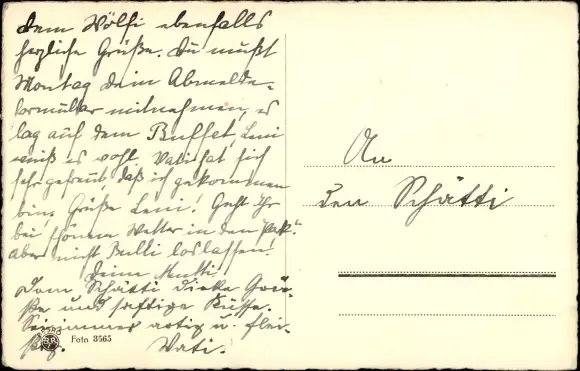 dem Wölfi ebenfalls
herzliche Grüße. Du mußt
Montag dein Abmelde-
formular mitnehmen, es
lag auf dem Buffet, Leni
weiß es wohl. Vati hat sich
sehr gefreut, daß ich gekommen
bin. Grüße Leni! Geht Ihr
bei schönem Wetter in den Park?
Aber nicht Bulli loslassen!
Deine Mutti
Dem Schätti dicke Grü-
ße und saftige Küsse.
Sei immer artig u. flei-
ßig. Vati.
Foto 3565
An
den Schätti